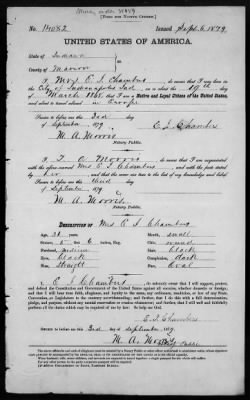 [FORM FOR NATIVE CITIZEN.]
No. 14082 Issued Sept. 6, 1879
UNITED STATES OF AMERICA.
State of Indiana
County of Marion
I, Mrs E. I. Chambers, do swear that I was born in the
City of Indianapolis Ind, on or about the 19th day
of March 1848; that I am a Native and Loyal Citizen of the United States,
and about to travel abroad in Europe
Sworn to before me this 3rd day
of September 1879
E I Chambers
M. A. Morris
Notary Public.
I, T. A. Morris, do swear that I am acquainted
with the above-named Mrs E I Chambers, and with the facts stated
by her, and that the same are true to the best of my knowledge and belief.
Sworn to before me this third day
of September 1879
M. A. Morris
Notary Public.
DESCRIPTION OF Mrs E I Chambers
Age: 31 years
Mouth: small
Stature: 5 feet 6 inches, Eng.
Chin: round
Forehead: medium
Hair: black
Eyes: black
Complexion: dark
Nose: straight
Face: oval
I, E I Chambers, do solemnly swear that I will support, protect,
and defend the Constitution and Government of the United States against all enemies, whether domestic or foreign;
and that I will bear true faith, allegiance, and loyalty to the same, any ordinance, resolution, or law of any State,
Convention, or Legislature to the contrary notwithstanding; and further, that I do this with a full determination,
pledge, and purpose, without any mental reservation or evasion whatsoever; and further, that I will well and faithfully
perform all the duties which may be required of me by law: So help me God.
E. I. Chambers
Sworn to before me this 3rd day of September 1879
M. A. Morris